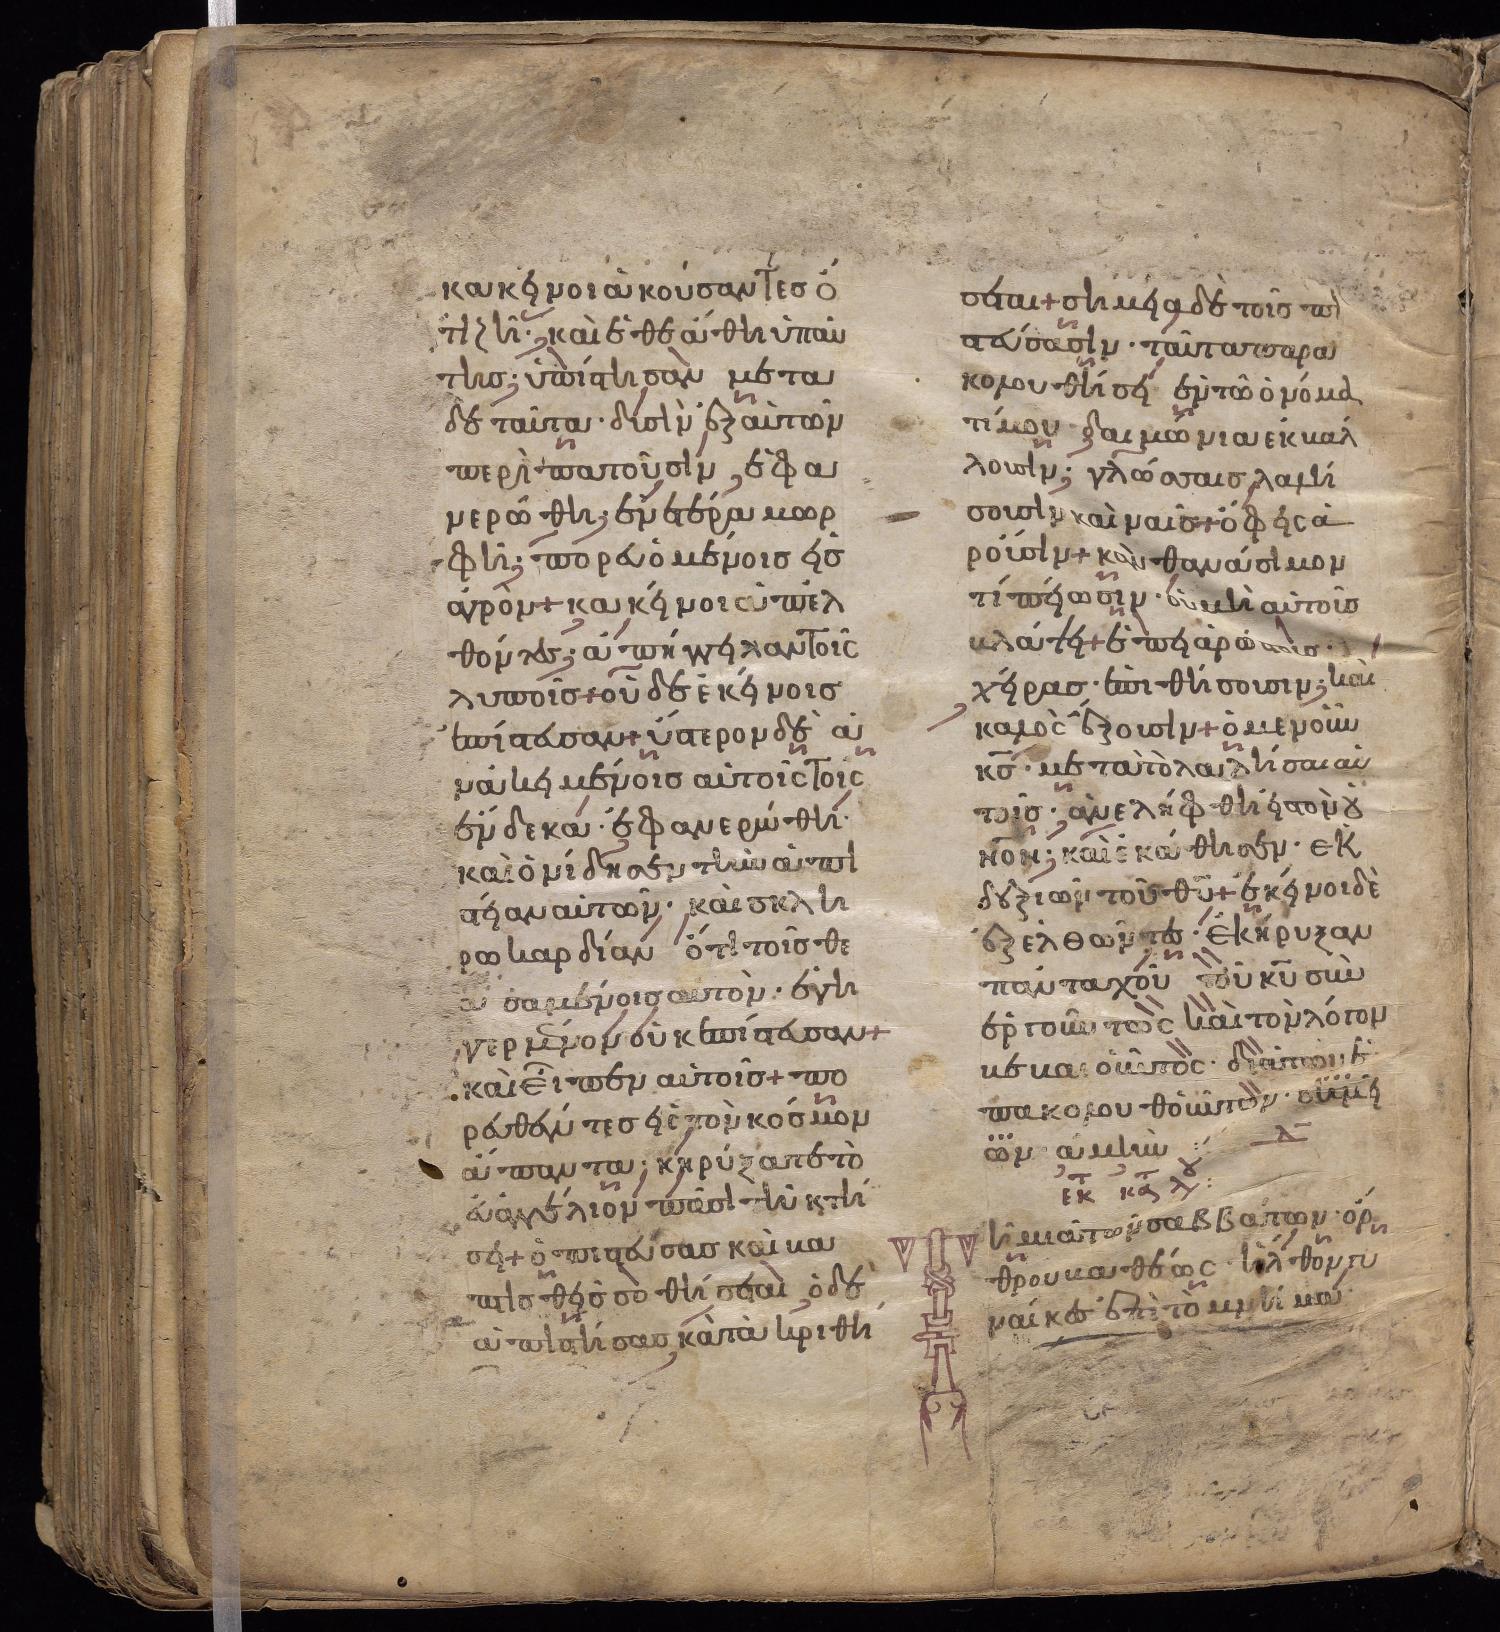 κακείνοι ἀκούσαντες ὅ
τι ζῆ· καὶ ἐθεάθη ὑπαυ
τῆς· ἠπίστησαν μετα
δὲ ταῦτα· δυσὶν ἐξ αὐτῶν
περὶ πατοῦσιν, ἐφα
νερώθη· ἐν ἑτέρα μορ
φῆ· πορευομένοις εἰς
ἀγρόν+ κακείνοι ἀπελ
θόντες· ἀπήγγειλαν τοῖς
λυποῖς+ οὐδὲ ἐκείνοις
ἐπίστευσαν+ ὕστερον δὲ ἀ
νακειμένοις αὐτοῖς τοῖς
ἕνδεκα· ἐφανερώθη·
καὶ ὀνίδησεν τὴν ἀπι
στείαν αὐτῶν· καὶ σκλη
ροκαρδίαν ὅτι τοῖς θε
ασαμένοις αὐτὸν· ἐγη
γερμένον οὐκ ἐπίστευσαν+
καὶ εἶπεν αὐτοῖς+ πο
ρευθέντες εἰς τὸν κόσμον
ἅπαντα· κηρύξατε τὸ
εὐαγγέλιον πάση τῆ κτή
σει+ ὁ πιστεύσας καὶ βα
πτισθεὶς σωθήσεται ὁ δὲ
ἀπιστήσας κατακριθή
σεται+ σημεία δὲ τοῖς πι
στεύσασιν· ταῦτα παρα
κολουθήσει ἐν τῶ ὀνόμα
τί μου δαιμόνια ἐκβαλ
λοισιν· γλώσσαις λαλή
σοισιν καιναῖς+ ὄφεις ἀ
ροῦσιν+ κἂν θανάσιμον
τί πίωσιν· οὐ μὴ αὐτοῖς
βλάψει+ ἐπὶ ἀρώστοις·
χεῖρας ἐπιθήσοισιν· καὶ
καλὸς ἔξοισιν+ ὁ μὲν οὖν
κς· μετὰ τὸ λαλῆσαι αὐ
τοῖς· ἀνελήφθη εἰς τὸν οὐ
νον· καὶ ἐκάθησεν· ἐκ
δεξιῶν τοῦ θυ+ ἐκείνοι δὲ
ἐξελθῶντες· ἐκήρυξαν
πανταχοῦ τοῦ κυ συν
εργοῦντος καὶ τὸν λόγον
βεβαιοῦντος· διὰ τῶν ἐ
πακολουθούντων· σημεί
ων ἀμήν
ἐκ κατ λου
τῆ μιᾶ τῶν σαββάτων· ὄρ
θρου βαθέως· ἦλθον γυ
ναίκες ἐπὶ τὸ μνῆμα